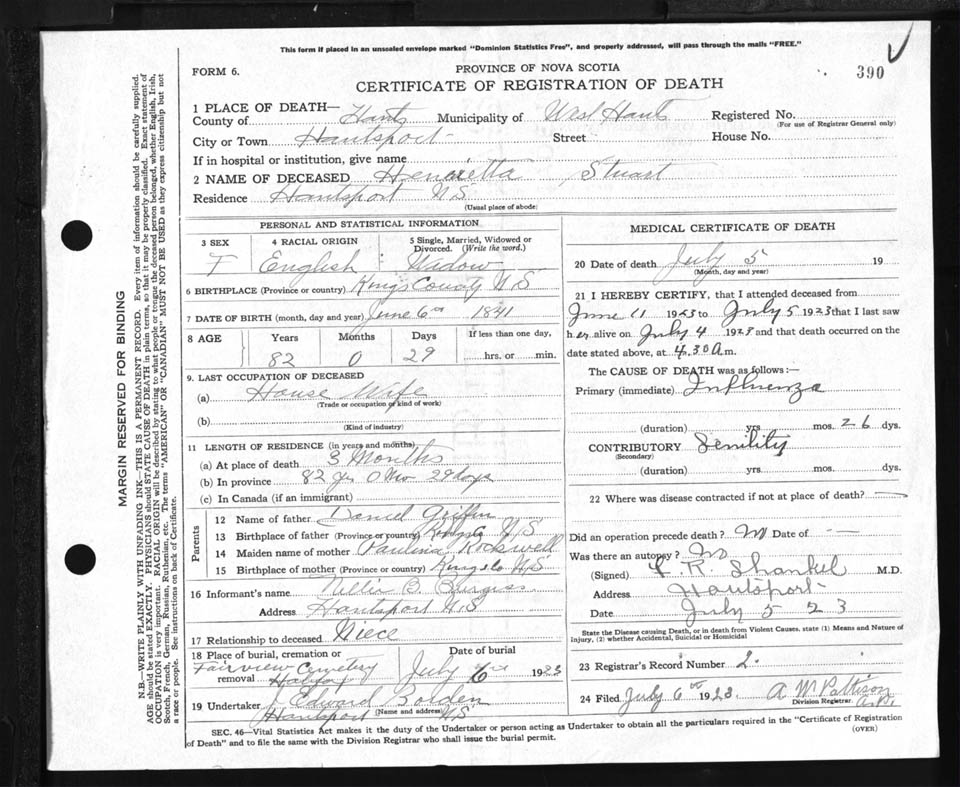 This form if placed in an unsealed envelope marked "Dominion Statistics Free", and properly addressed, will pass through the mails "FREE."
FORM 6.
PROVINCE OF NOVA SCOTIA
390
CERTIFICATE OF REGISTRATION OF DEATH
1 PLACE OF DEATH—
County of Hants Municipality of West Hants Registered No.
(For use of Registrar General only)
City or Town Hantsport Street House No.
If in hospital or institution, give name
2 NAME OF DECEASED Henrietta Stuart
Residence Hantsport N S
(Usual place of abode)
PERSONAL AND STATISTICAL INFORMATION
3 SEX 4 RACIAL ORIGIN 5 Single, Married, Widowed or Divorced. (Write the word.)
F English Widow
6 BIRTHPLACE (Province or country) Kings County N S
7 DATE OF BIRTH (month, day and year) June 6th 1841
8 AGE Years Months Days If less than one day,
82 0 29 hrs. or min.
9. LAST OCCUPATION OF DECEASED
(a) House Wife
(Trade or occupation or kind of work)
(b)
(Kind of industry)
11 LENGTH OF RESIDENCE (in years and months)
(a) At place of death 3 Months
(b) In province 82 yrs 0 Mo 29 days
(c) In Canada (if an immigrant)
Parents
12 Name of father Daniel Griffin
13 Birthplace of father (Province or country) Kings Co N S
14 Maiden name of mother Paulina Rockwell
15 Birthplace of mother (Province or country) Kings Co N S
16 Informant's name Nellie B. Burgess
Address Hantsport N.S
17 Relationship to deceased Niece
18 Place of burial, cremation or removal Date of burial
Fairview Cemetery Halifax July 6th 1923
19 Undertaker Edward Borden
Hantsport (Name and address) N.S
MEDICAL CERTIFICATE OF DEATH
20 Date of death July 5 19
(Month, day and year)
21 I HEREBY CERTIFY, that I attended deceased from
June 11 1923 to July 5 1923 that I last saw
her alive on July 4 1923 and that death occurred on the
date stated above, at 4.30 A m.
The CAUSE OF DEATH was as follows:—
Primary (immediate) Influenza
(duration) yrs. mos. 26 dys.
CONTRIBUTORY Senility
(Secondary)
(duration) yrs. mos. dys.
22 Where was disease contracted if not at place of death? —
Did an operation precede death? No Date of -
Was there an autopsy? No
(Signed) R. Shankel M.D.
Address Hantsport
Date July 5 23
State the Disease causing Death, or in death from Violent Causes, state (1) Means and Nature of Injury, (2) whether Accidental, Suicidal or Homicidal
23 Registrar's Record Number 2.
24 Filed July 6th 1923 A M Pattison
Division Registrar.
SEC. 46—Vital Statistics Act makes it the duty of the Undertaker or person acting as Undertaker to obtain all the particulars required in the "Certificate of Registration
of Death" and to file the same with the Division Registrar who shall issue the burial permit.
(OVER)
MARGIN RESERVED FOR BINDING
N.B.—WRITE PLAINLY WITH UNFADING INK—THIS IS A PERMANENT RECORD. Every item of information should be carefully supplied.
AGE should be stated EXACTLY. PHYSICIANS should STATE CAUSE OF DEATH in plain terms, so that it may be properly classified. Exact statement of
OCCUPATION is very important. RACIAL ORIGIN will be described by stating to what people or tongue the deceased person belonged, whether English, Irish,
Scotch, French, German, Russian, Ruthenian, etc. The terms "AMERICAN" OR "CANADIAN" MUST NOT BE USED as they express citizenship but not
a race or people. See instructions on back of Certificate.